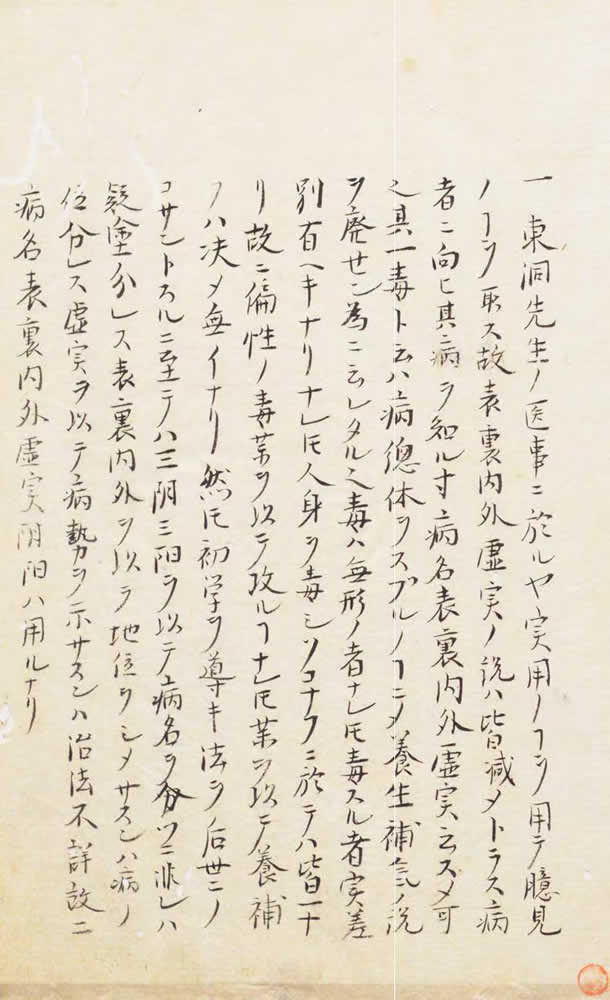 一東洞先生ノ医事ニ於ルヤ実用ノヿヲ用テ臆見
ノヿヲ取ス故表裏内外虚実ノ説ハ皆減メトラス病
者ニ向ヒ其病ヲ知ル寸病名表裏内外虚実云スメ可
之其一毒ト云ハ病總体ヲスブルノヿニメ養生補氣ノ説
ヲ廃せン為ニ云レタル之毒ハ無形ノ者ナレ𪜈毒スル者実差
別有ヘキナリナレ𪜈人身ヲ毒シソコナフニ於テハ皆一ナ
リ故ニ偏性ノ毒薬ヲ以テ攻ルヿナレ𪜈薬ヲ以テ養補
ノハ决メ無イナリ然𪜈初学ヲ導キ法ヲ后世ニノ
コサントスルニ至テハ三阴三阳ヲ以テ病名ヲ分ツニ非レハ
疑塗分レス表裏内外ヲ以テ地位ヲシメサスンハ病ノ
位分レス虚実ヲ以テ病勢ヲ示サスンハ治法不詳故ニ
病名表裏内外虚実阴阳ハ用ルナリ